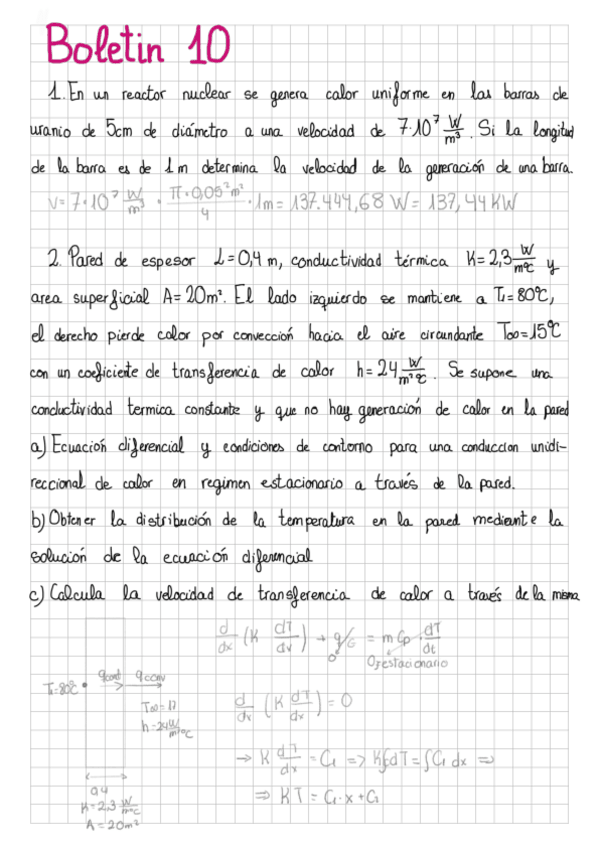 Boletin 10
1. En un reactor nuclear se genera calor uniforme en las barras de
uranio de 5cm de diámetro a una velocidad de 7·10⁷ W/m³. Si la longitud
de la barra es de 1m determina la velocidad de la generación de una barra.
V = 7·10⁷ W/m³ · π·0,05² m²/4 · 1m = 137.444,68 W = 137,44 KW
2. Pared de espesor L=0,4 m, conductividad térmica K=2,3 W/mºC y
area superficial A=20m². El lado izquierdo se mantiene a T₁=80ºC,
el derecho pierde calor por convección hacia el aire circundante T∞=15ºC
con un coeficiente de transferencia de calor h=24 W/m²ºC. Se supone una
conductividad termica constante y que no hay generación de calor en la pared
a) Ecuación diferencial y condiciones de contorno para una conduccion unidi-
reccional de calor en regimen estacionario a través de la pared.
b) Obtener la distribución de la temperatura en la pared mediante la
solución de la ecuación diferencial
c) Calcula la velocidad de transferencia de calor a través de la misma
d/dx (K dT/dv) → q/G = m Cp · dT/dt
0
O, estacionario
qcond qconv
T₁=80ºC
T∞=17
h=24 W/m²ºC
0,4
K=2,3 W/mºC
A=20m²
d/dv (K dT/dx) = 0
→ K dT/dx = C₁ => K∫dT = ∫C₁ dx =>
=> KT = C₁·x + C₁